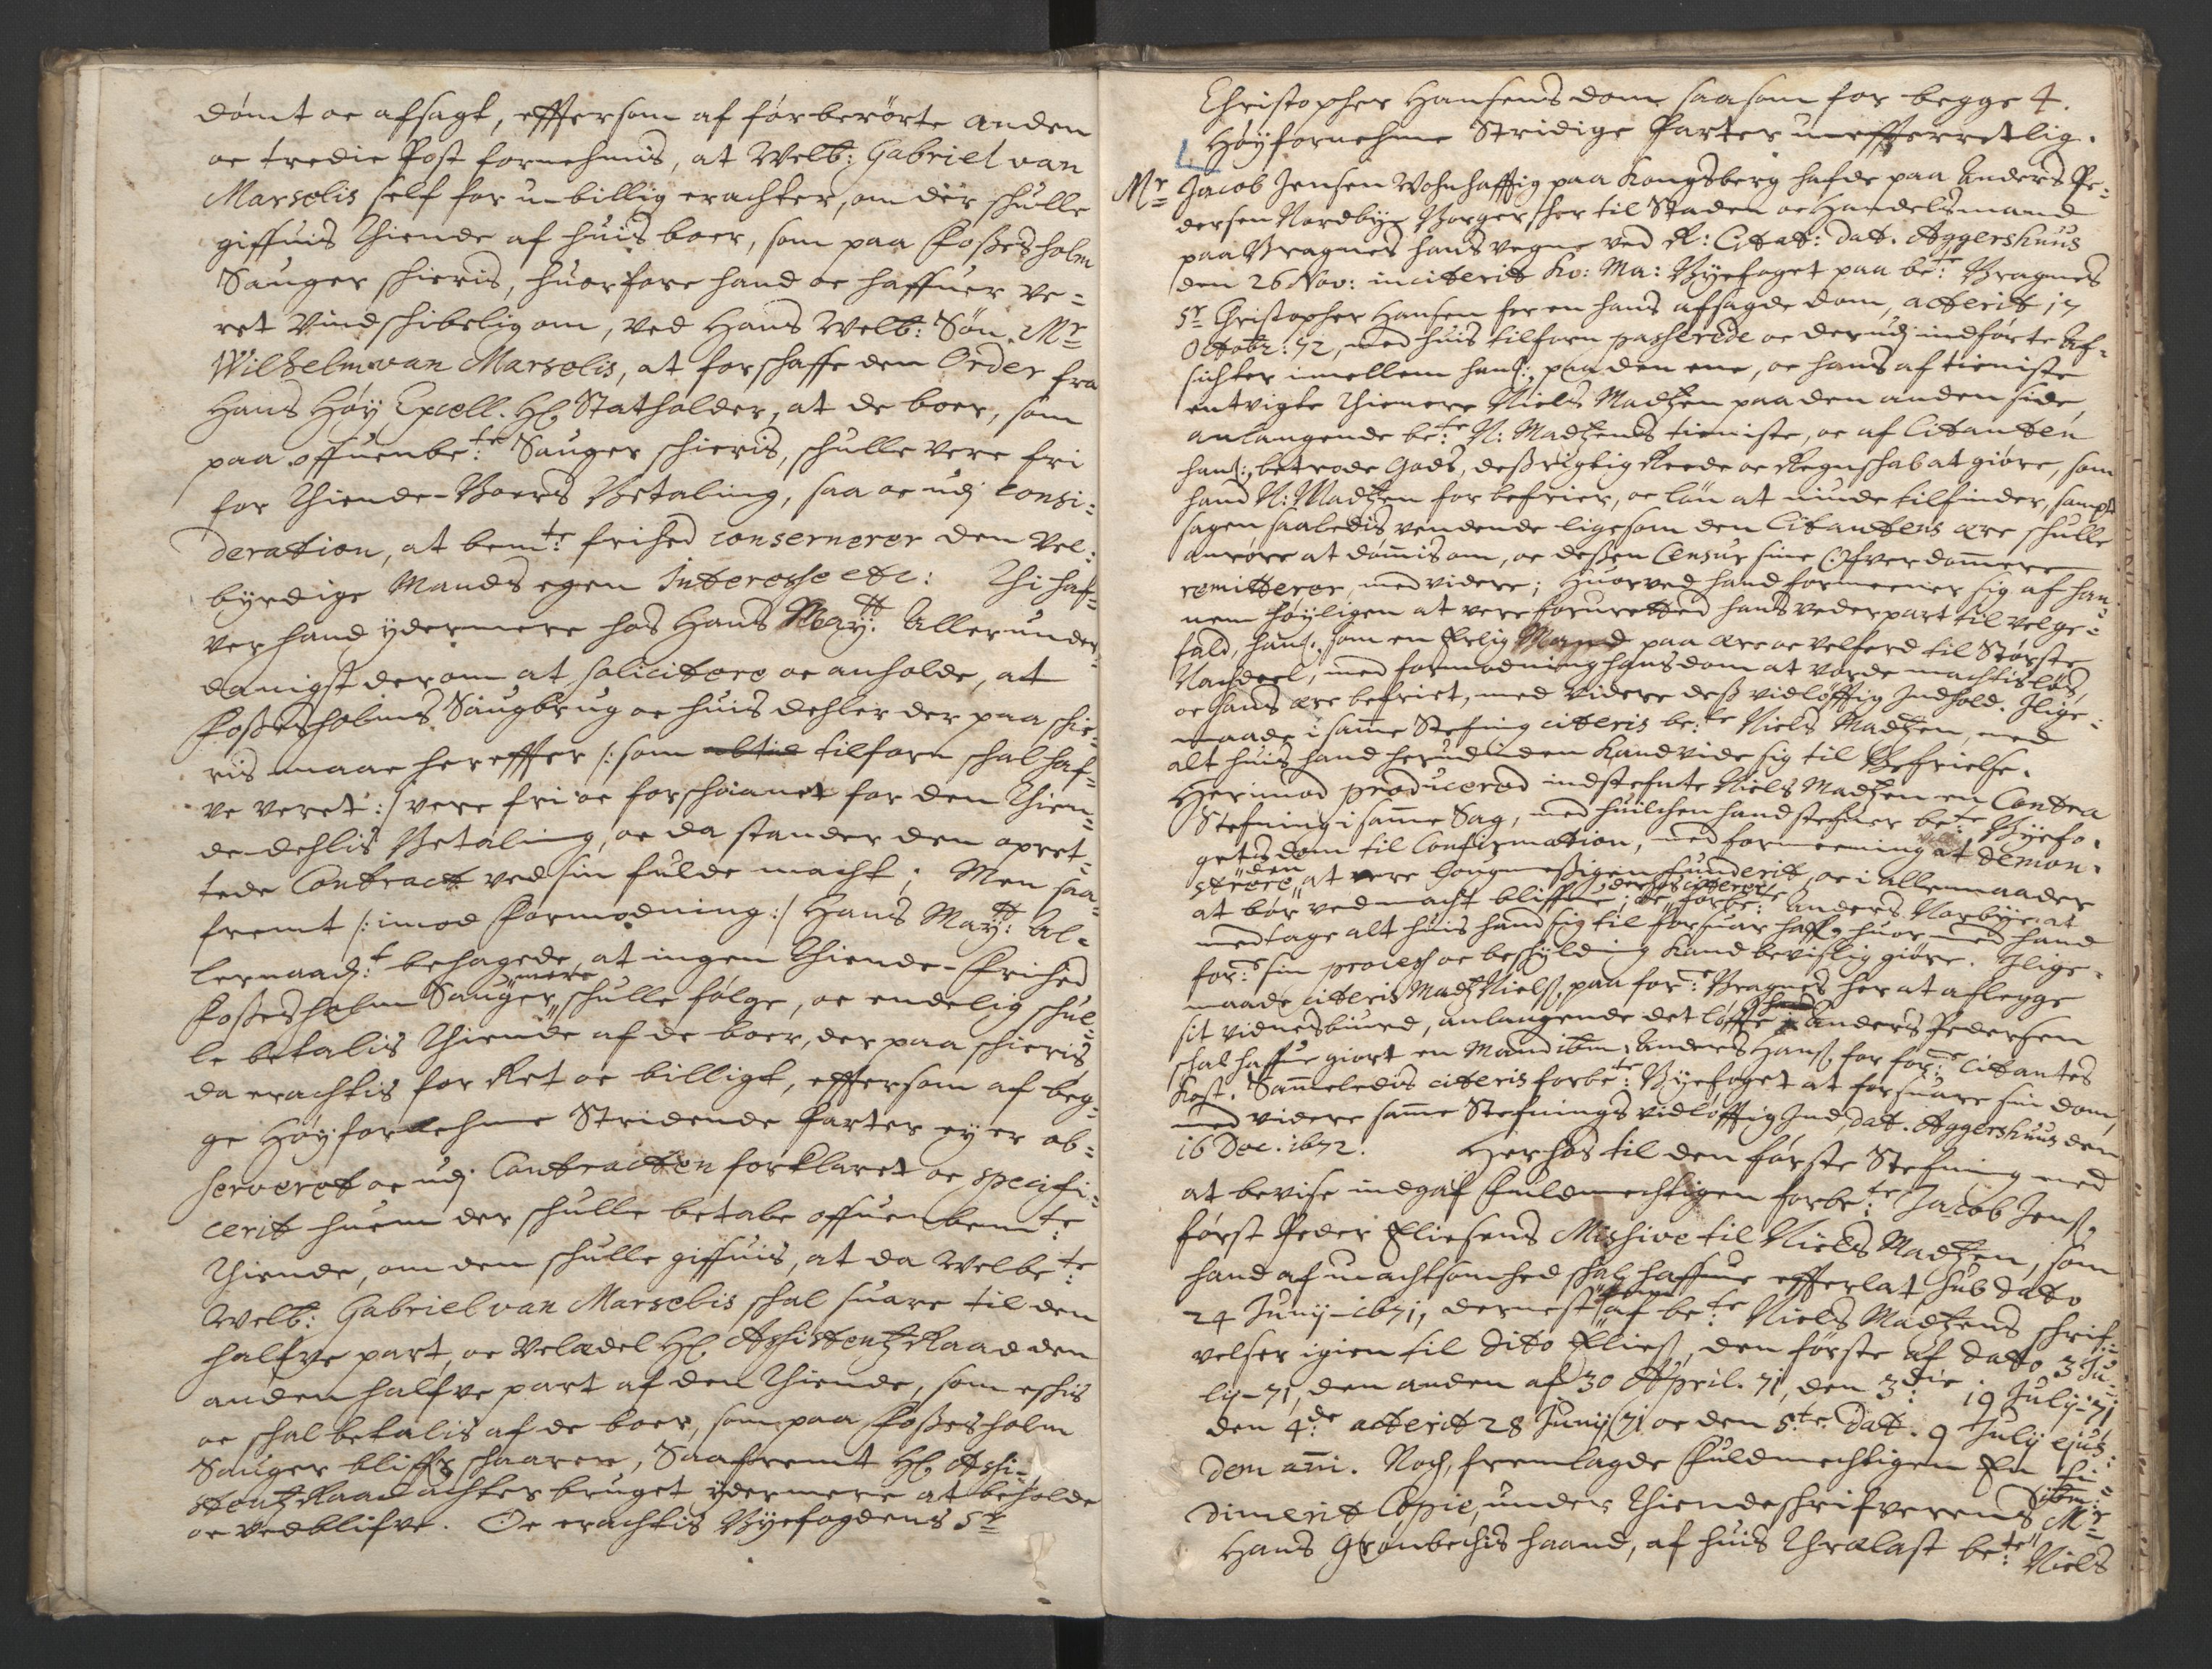 dømt oc afsagt, effter som af för berörte anden
oc tredie Post fornehmis, at Welb: Gabriel van
Marselis self for ubillig erachter, om dér schulle
giffuis Thiende af huis boer, som paa Foßesholm
Sauger schieris, huorfore hand oc haffuer ve¬
ret Vindschibelig om, ved Hans Welb: Søn Mr
Wilhelm van Marselis, at forschaffe den Order fra
Hans Høy Excell. Hr Statholder, at de boer, som
paa offuenbe:te Sauger schieris, schulle vere fri
for Thiende-Boers Betaling, saa oc udj Consi¬
deration, at bem:te frihed concernerer den Vel¬
byrdige Mands egen Interesse etc: Thi haf¬
ver hand ydermere hos Hans May:tt Allerunder¬
danigst der om at solicitere oc anholde, at
Foßesholms Saugbrug oc huis dehler der paa schie¬
ris maae hereffter /: som altid tilforn schal haf¬
ve veret :/ vere fri oc forschaanet for den Thien¬
de-dehlis Betaling, oc da stander den opret¬
tede Contract ved sin fulde macht; Men saa¬
fremt /: imod Formodning :/ Hans May:tt Al¬
lernaad:t behagede, at ingen Thiende-Frihed
Foßesholm Sauger mere schulle følge, oc endelig schul¬
le betalis Thiende af de boer, der paa schieris,
da erachtis for Ret oc billigt, effter som af beg¬
ge Høyfornehme Stridende Parter ey er ob¬
serveret oc udj Contracten forklaret oc specifi¬
cerit huem der schulle betale offuenbem:te
Thiende, om den schulle giffuis, at da Welbe:te
Welb: Gabriel van Marselis schal suare til den
halfve part, oc Veladel Hr Assistentz Raad den
anden halfve part af den Thiende, som eschis
oc schal betalis af de boer, som paa Foßesholm
Sauger bliffr schaaren, Saafremt Hr Assi¬
stentz Raad achter bruget ydermere at beholde
oc vedblifve. Oc erachtis Byefogdens Sr
Christopher Hansens dom saasom for begge 4.
Høyfornehme Stridige Parter ueffterretlig.
Mr Jacob Jensen Wohnhafftig paa Kongsberg hafde paa Anders Pe¬
dersen Nordbye Borger her til Staden oc Handelsmand
paa Bragnes hans vegne ved K: Citat: dat. Aggershuus
den 26 Nov: inciterit Ko: Ma: Byefoget paa be:te Bragnes
Sr Christopher Hansen for en hans afsagde dom, acterit 17
Octobr: 72, med huis tilforn passerede oc derudj indførte Af¬
sichter imellem hanß: paa den ene, oc hans af tieniste
entvigte Thienere Niels Madtzen paa den anden side,
anlangende be:te N: Madtzens tieniste, oc af Citanten
hanß: betrode Gods, deß rigtig Rede oc Regnschab at giøre, som
hand N: Madtzen for befrier, oc løn at niude tilfinder, sampt
sagen saaledis vendende ligesom den Citantens ære schulle
anröre at dömis om, oc deßen Censur sine Ofverdommere
remitterer, med videre; Huorved hand formeener sig af han¬
nem høyligen at vere foruretted hans vederpart til velge¬
fald, hanß: som en Erlig Mand paa ære oc velferd til Største
Nachdeel, med formodning hans dom at vorde machtisløs,
oc hans ære befriet, med videre deß vidløfftig Indhold. Ilige¬
maade i samme Stefning citeris be:te Niels Madtzen, med
alt huis hand herudinden Kand vide sig til Befrielse.
Herimod producered indstefnte Niels Madtzen en Contra
Stefning i samme Sag, med huilchen hand stefner be:te Byefo¬
gets dom til Confirmation, med formeening at demon¬
strere, at den vere lougmeßigen funderit, oc i allemaader
at bør ved macht bliffue; der hos citerer forbe:te Anders Norbye at
medtage alt huis hand sig til forsuar haffr huor med hand
for:e sin process oc beschylding kand bevislig giøre. Ilige¬
maade citeris Madtz Nielß: paa for:e Bragnes her at aflegge
sit vidnesbiurd, anlangende det løffte Anders Pedersen
schal haffue giort en Mand ibm Anders Hanß: for for:e Citantes
Kost. Sammeledis citeris forbe:te Byefoget at forsuare sin dom,
med videre samme Stefnings vidløfftig Ind. dat. Aggershuus den
16 Dec. 1672. Herhos til den første Stefning med
at bevise indgaf Fuldmechtigen forbe:te Jacob Jenß:
først Peder Eliesens Missive til Niels Madtzen, som
hand af uachtsomhed schal haffue effterlat sub dato
24 Junij-1671, dernest af be:te Niels Madtzens schrif¬
velser igien til dito Eließ: den første af dato 3 Ju¬
lij-71, den anden af 30 April. 71, den 3die 19 Julij-71
den 4de acterit 28 Junij 71 oc den 5te dat. 9 Julij ejus¬
dem anni. Noch, fremlagde Fuldmechtigen En Fi¬
dimerit Copie, under Thiendeschrifverens ibm: Mr
Hans Grønbechis haand, af huis Thrælast be:te Niels